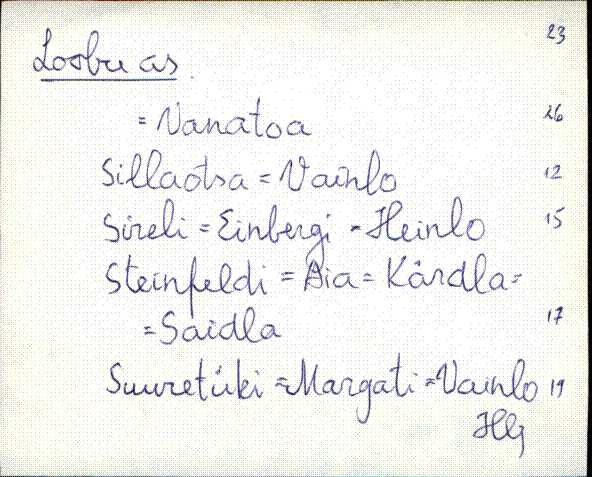 23
Loobu as
= Vanatoa 26
Sillaotsa = Vainlo 12
Sireli = Einbergi = Heinlo 15
Steinfeldi = Aia = Kärdla =
= Saidla 17
Suuretüki = Margati = Vainlo 19